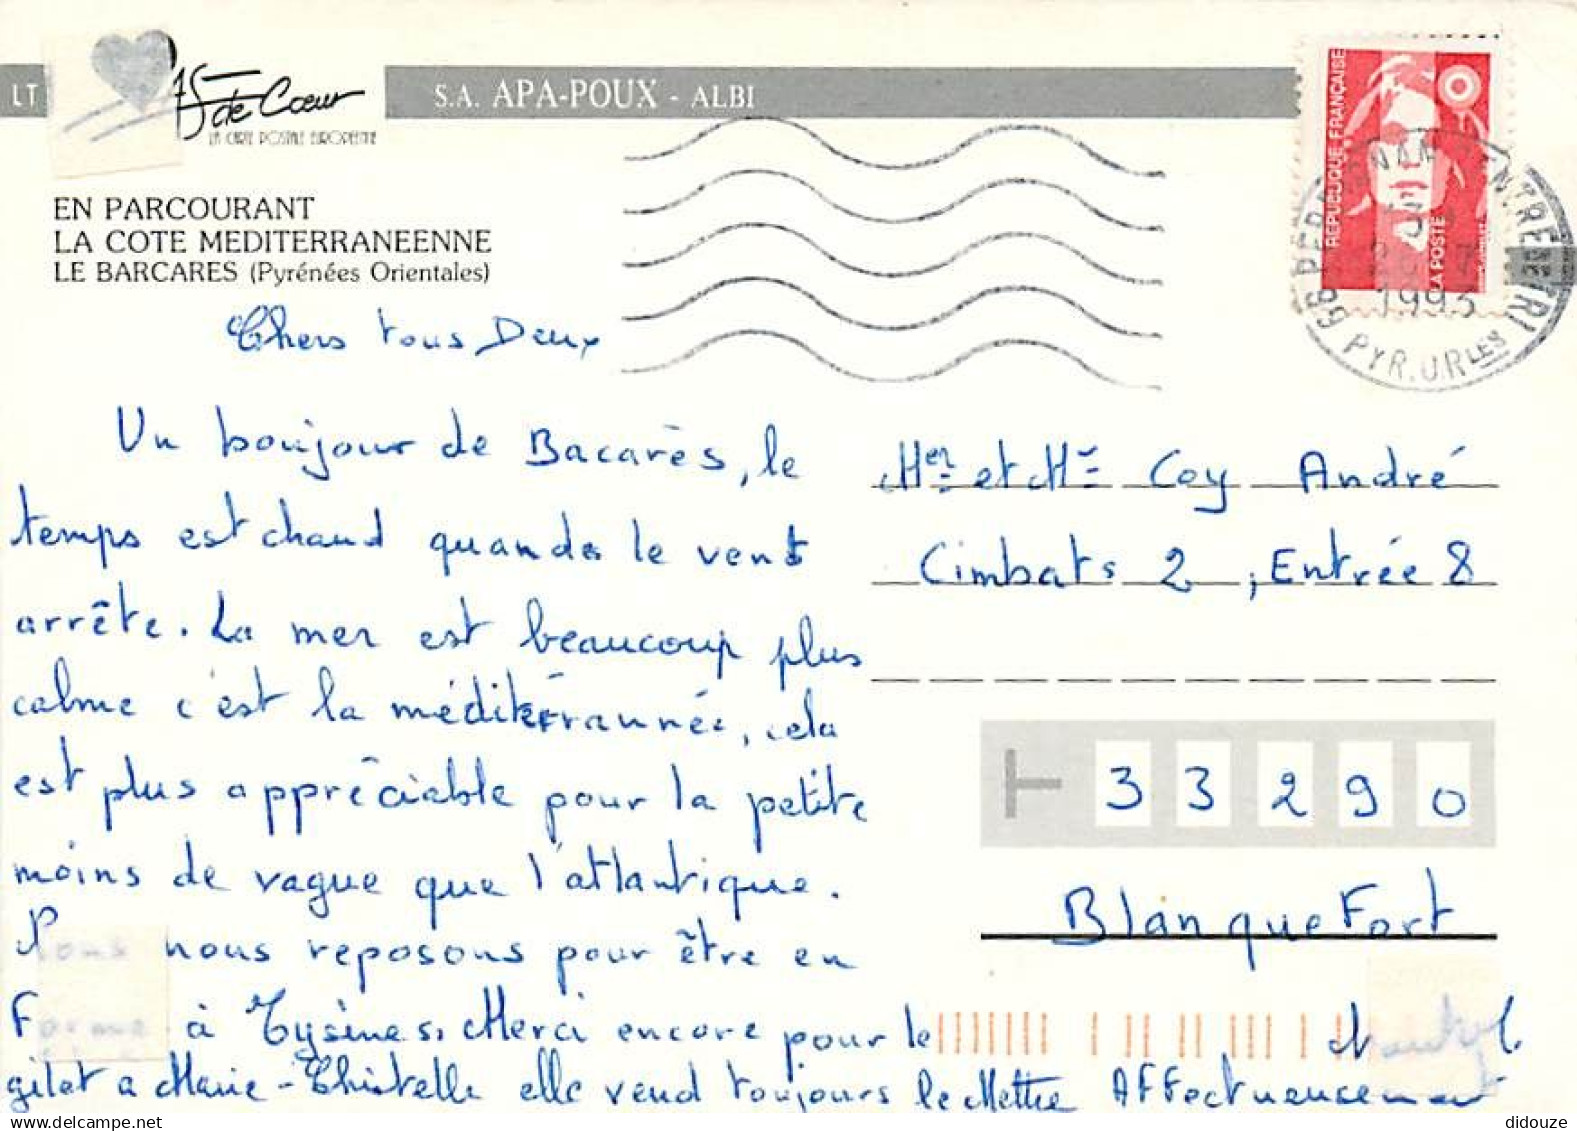 LT
de Cœur
LA CARTE POSTALE EUROPEENNE
S.A. APA-POUX - ALBI
REPUBLIQUE FRANÇAISE
LA POSTE
66 PERPIGNAN CENTRE TRI
1993
PYR. ORLES
EN PARCOURANT
LA COTE MEDITERRANEENNE
LE BARCARES (Pyrénées Orientales)
Chers tous Deux
Un bonjour de Bacarès, le
temps est chaud quand le vent
arrête. La mer est beaucoup plus
calme c'est la méditérrannée, cela
est plus appréciable pour la petite
moins de vague que l'atlantique.
Nous nous reposons pour être en
Forme à Eysines. Merci encore pour le
gilet a Marie-Chistelle elle vend toujours le Mettre Affectueusement
Mer et Me Coy André
Cimbats 2, Entrée 8
33290
BlanqueFort
didouze